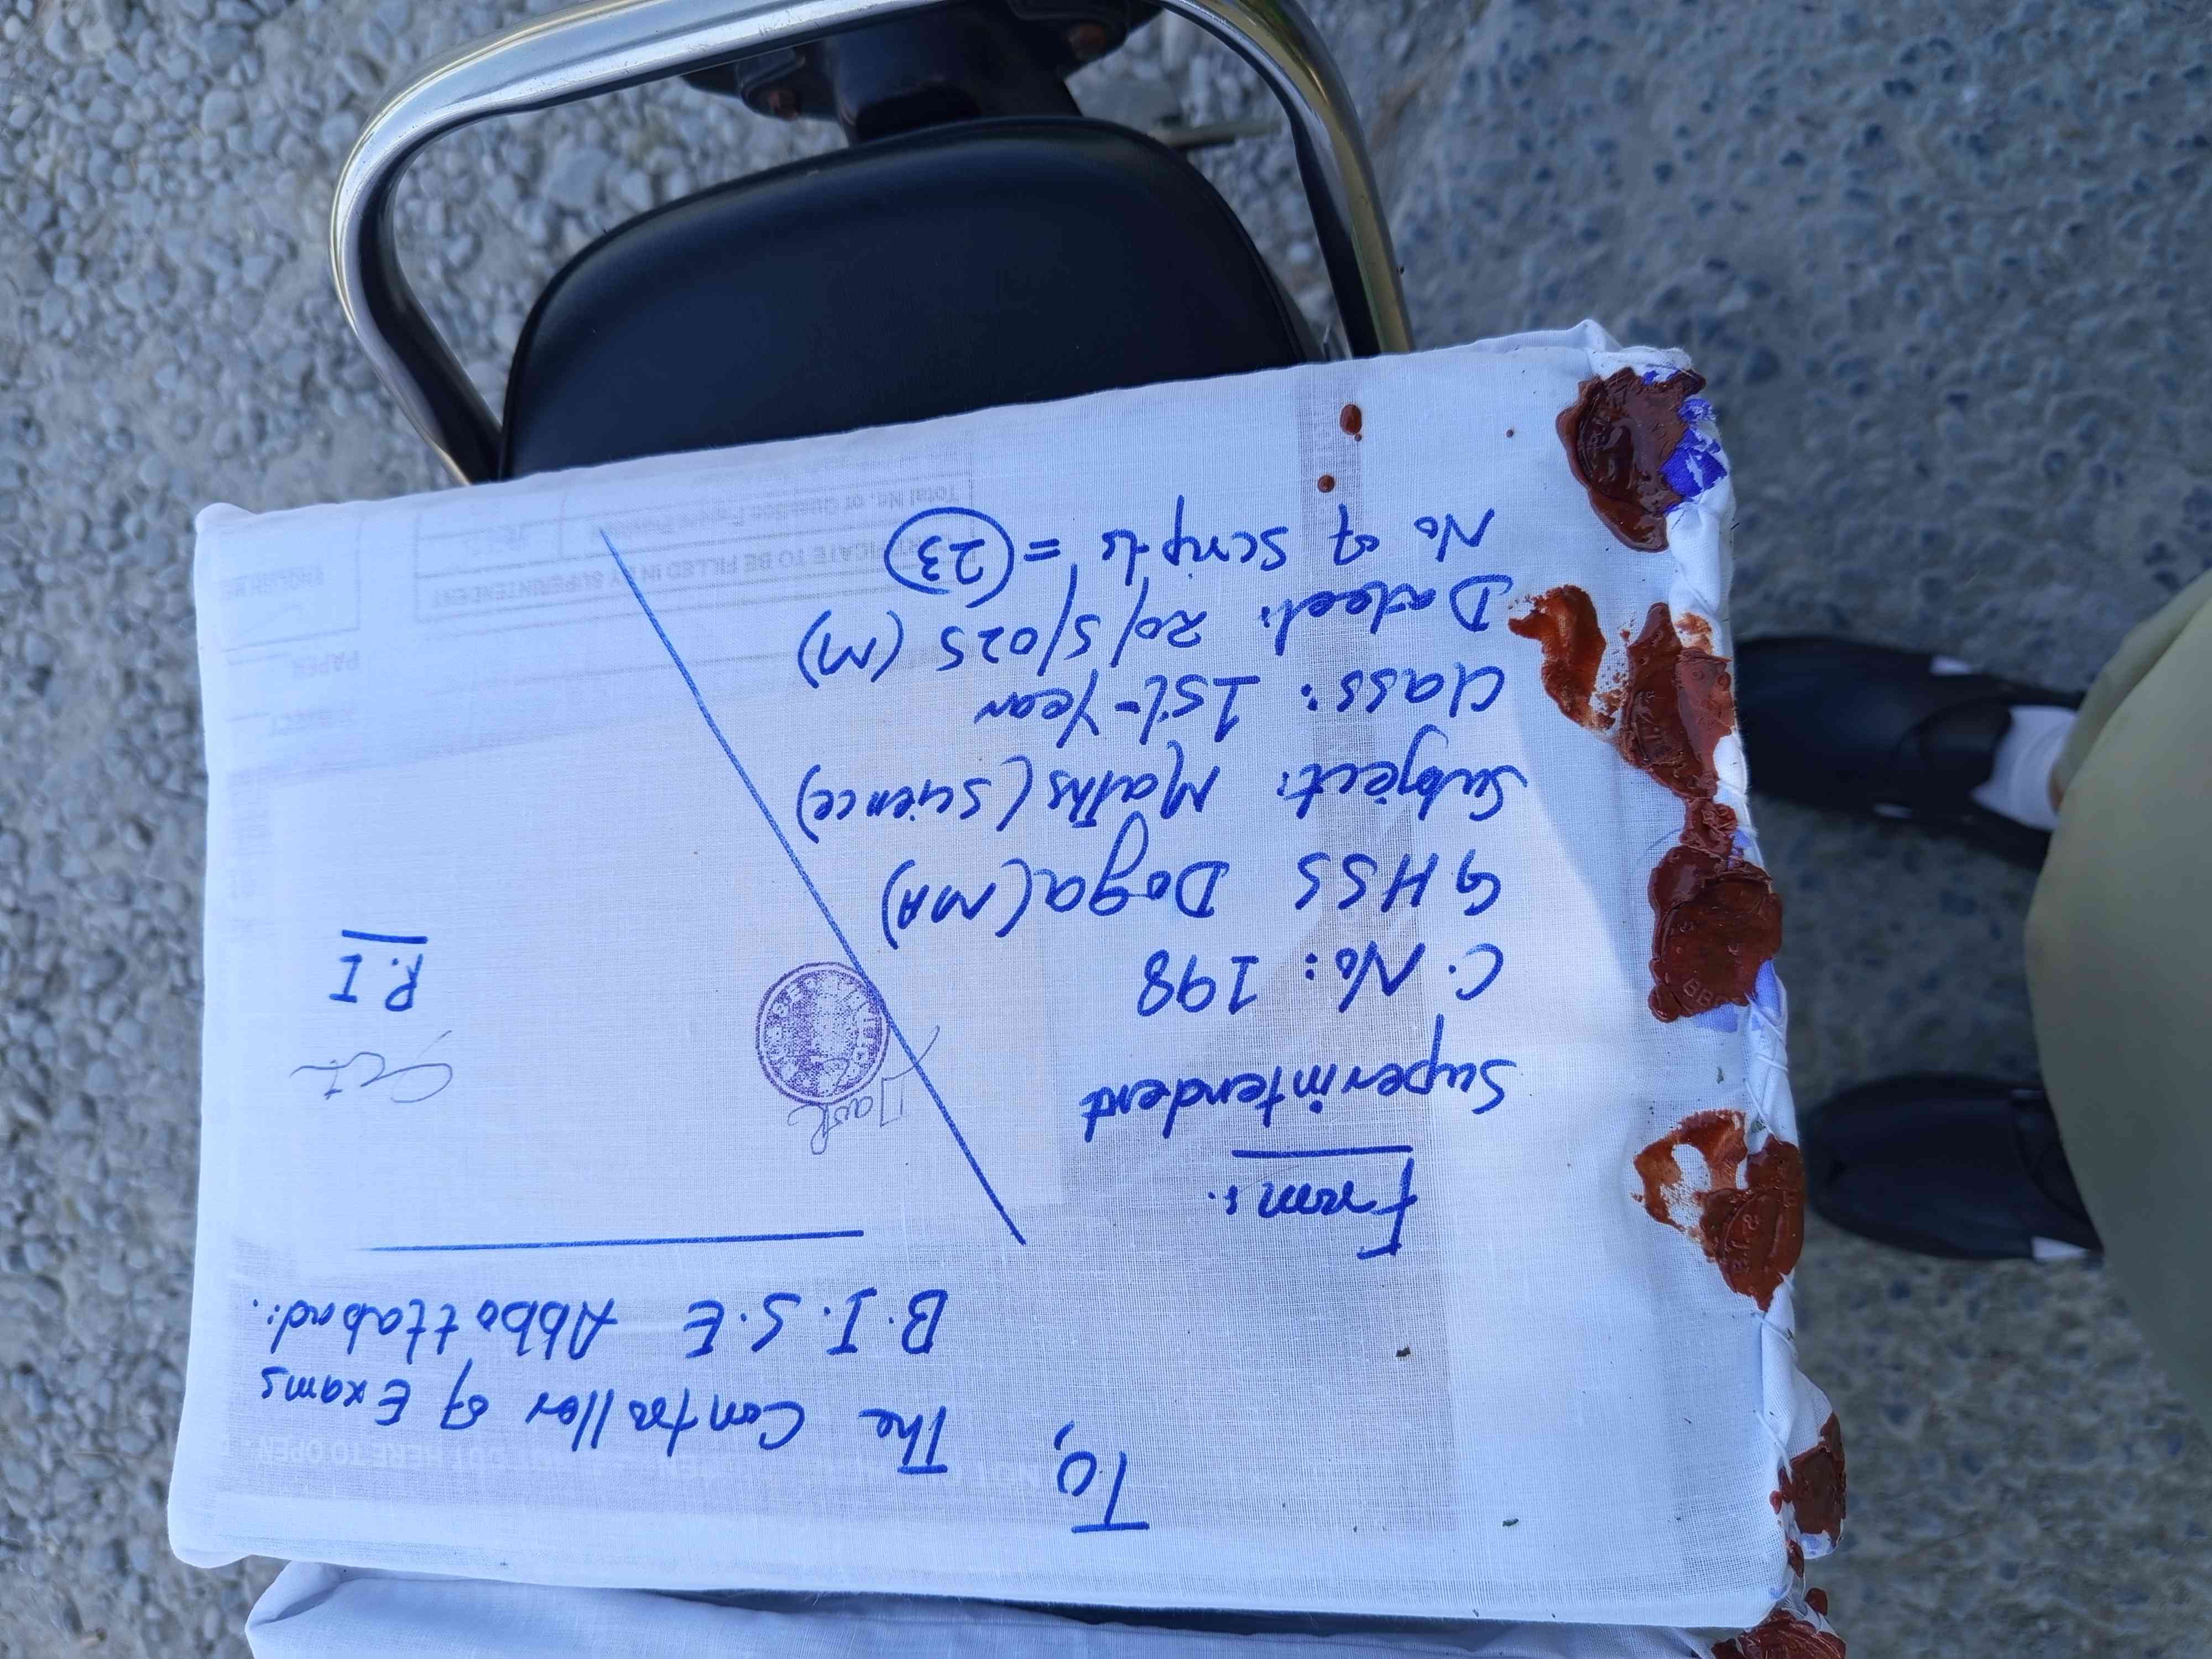 To,
The Controller of Exams
B.I.S.E Abbottabad.
From:
Superintendent
C.No: 198
GHSS Doga (MA)
Subject: Maths (Science)
Class: 1st-Year
Dated: 20/5/025 (M)
No of Scripts = 23
R.I
CUT HERE TO OPEN
CERTIFICATE TO BE FILLED IN BY SUPERINTENDENT
Total No. of Question Papers
PAPER